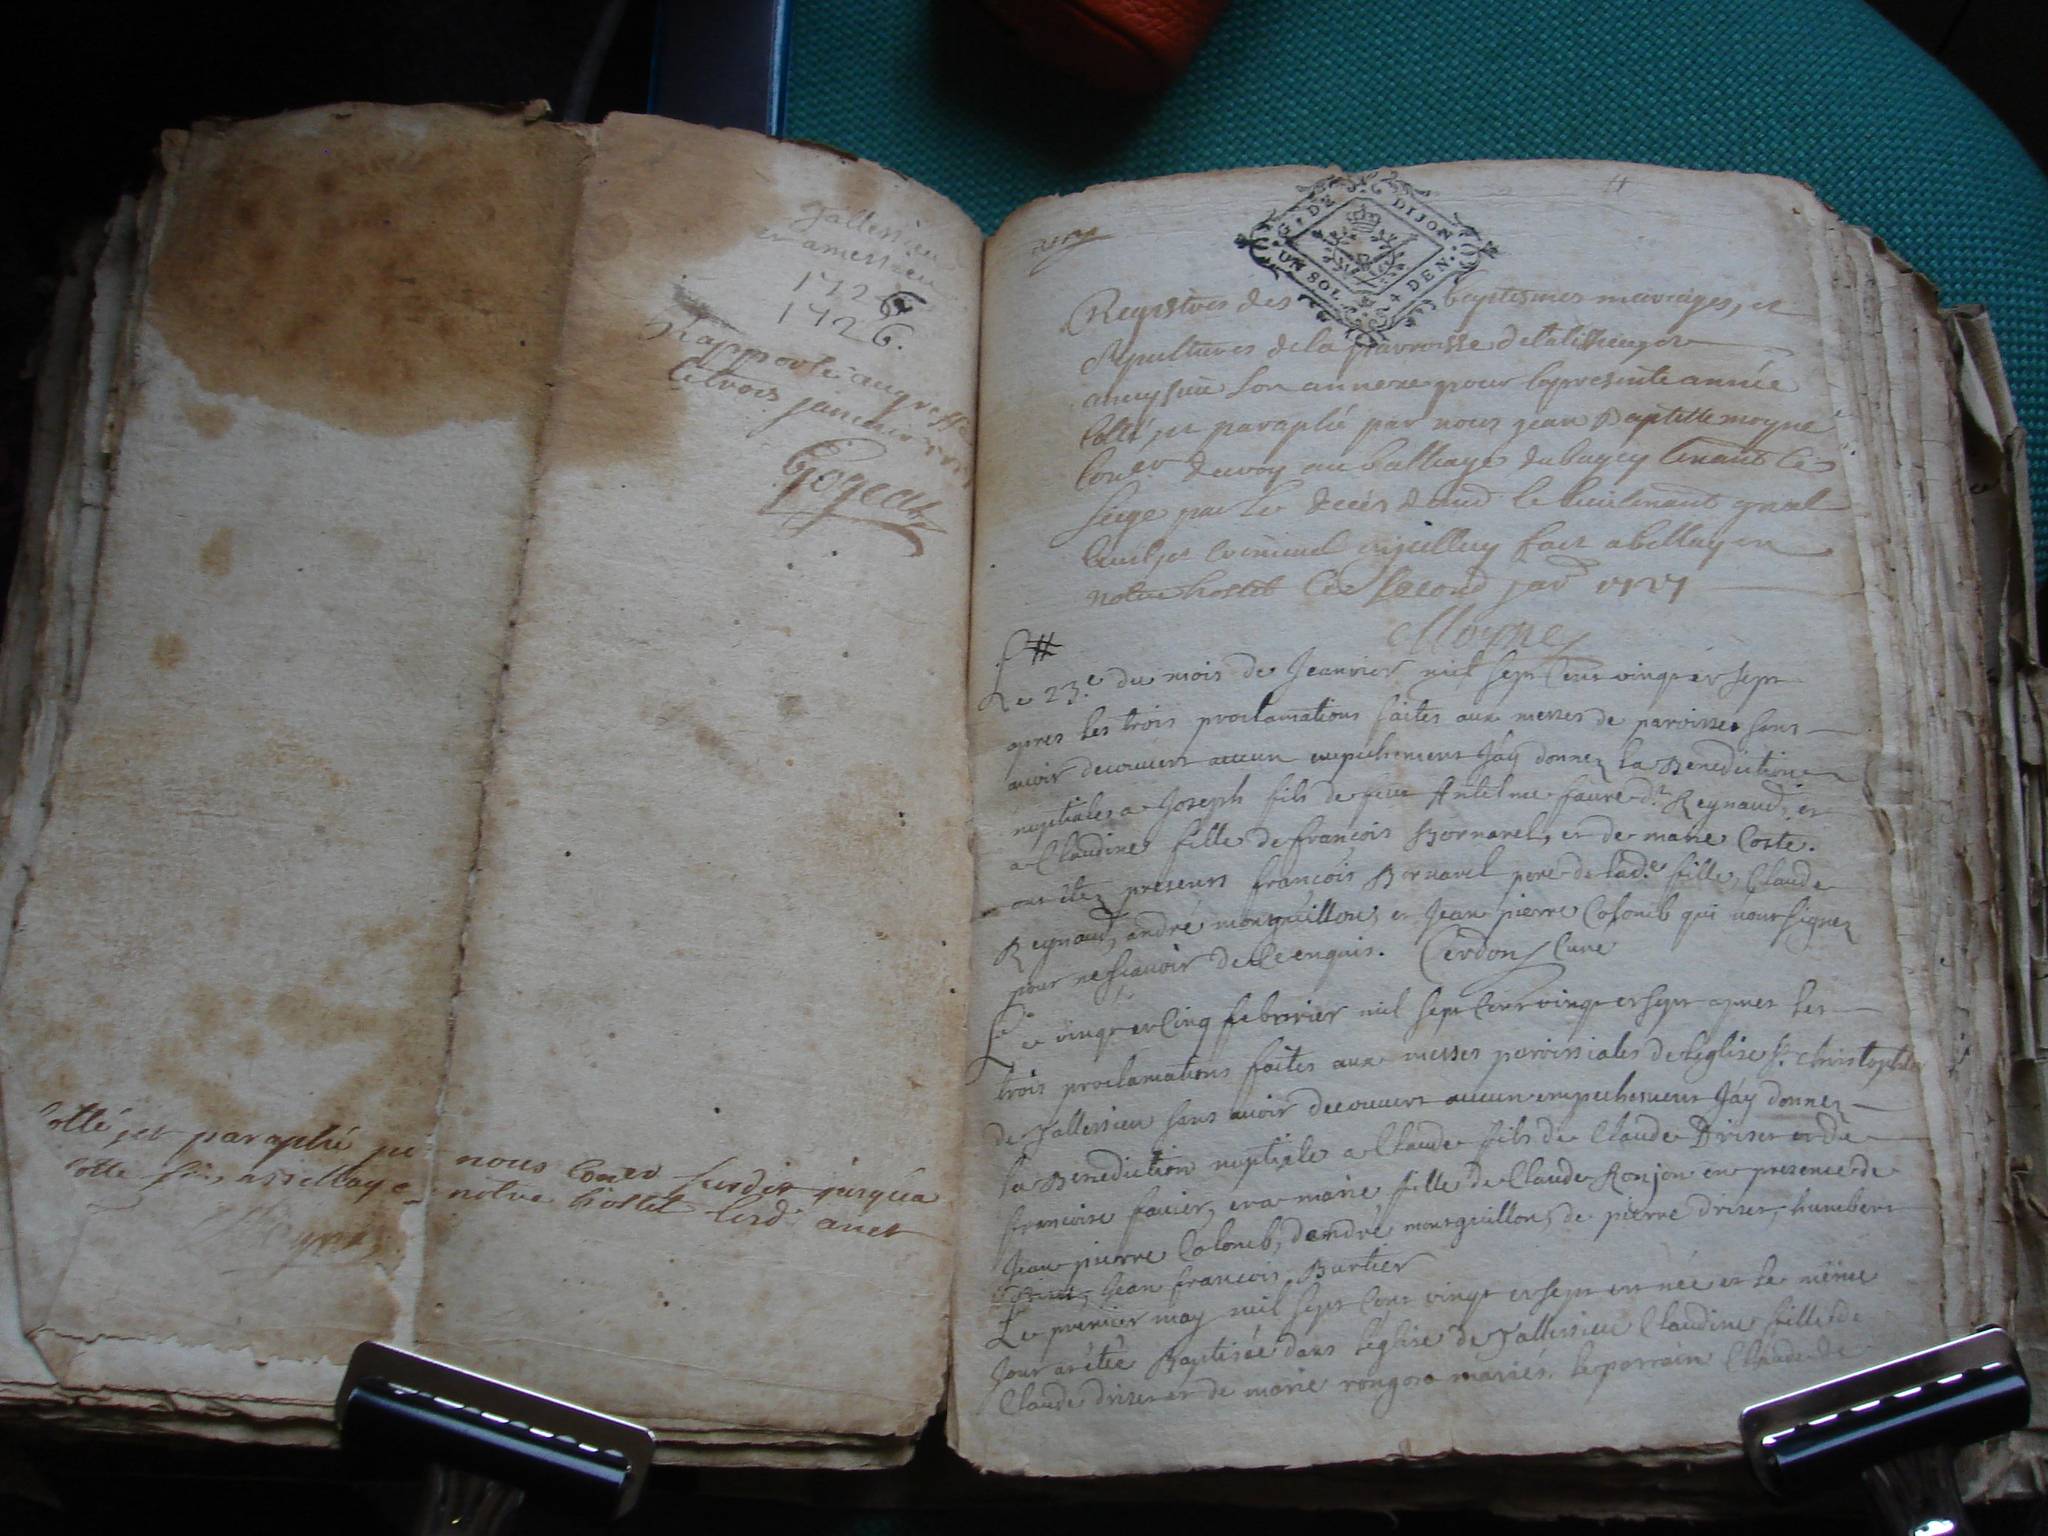 Tallessieu
et ameysieu
1726
1726.
Rapporté au greffe
le trois janvier
Gogeat
Cotté et paraphé par nous Coner susdit jusqua
cotte six, a Bellay en notre hostel lesd. an et
Moyne
G. DE DIJON
UN SOL 4 DEN.
Registres des baptesmes mariages, et
sepultures de la parroisse de talissieu, et
ameysieu son annexe pour la presente année
Cotté, et paraphé par nous jean Baptiste moyne
Coner du roy au balliage du bugey tenant le
siege par le decés de mr le lieutenant gnal
civil et criminel en jcelluy fait a bellay en
notre hostel le second janr 1727
Moyne
Le 23.e du mois de Jeanvier mil sept cent vingt et sept
apres les trois proclamations faites aux messes de paroisse sans
avoir decouvert aucun empechement Jay donnez la Benediction
nuptiale a Joseph fils de feu Antelme faure dt Reynaud, et
a Claudine fille de françois Bornarel, et de marie Coste.
ont étez presents françois Bornarel pere de lade fille, Claude
Reynaud, andré montguillon, et Jean pierre Colomb qui nont signez
pour ne scavoir de ce enquis. Cerdon Curé
Le vingt et cinq febvrier mil sept cent vingt et sept apres les
trois proclamations faites aux messes paroissiales de leglise St. christophle
de Tallessieu sans avoir decouvert aucun empechement Jay donnez
la Benediction nuptiale a Claude fils de Claude Driset et de
francoise favier, et a marie fille de Claude Ronjon en presence de
Jean pierre Colomb, dandré montguillon, de pierre driset, humbert
Driset, Jean francois Burtier
Le premier may mil sept cent vingt et sept est née et le même
Jour a étée Baptisée dans leglise de Tallessieu Claudine fille de
Claude driset et de marie rongon mariés. le parrain Claude de